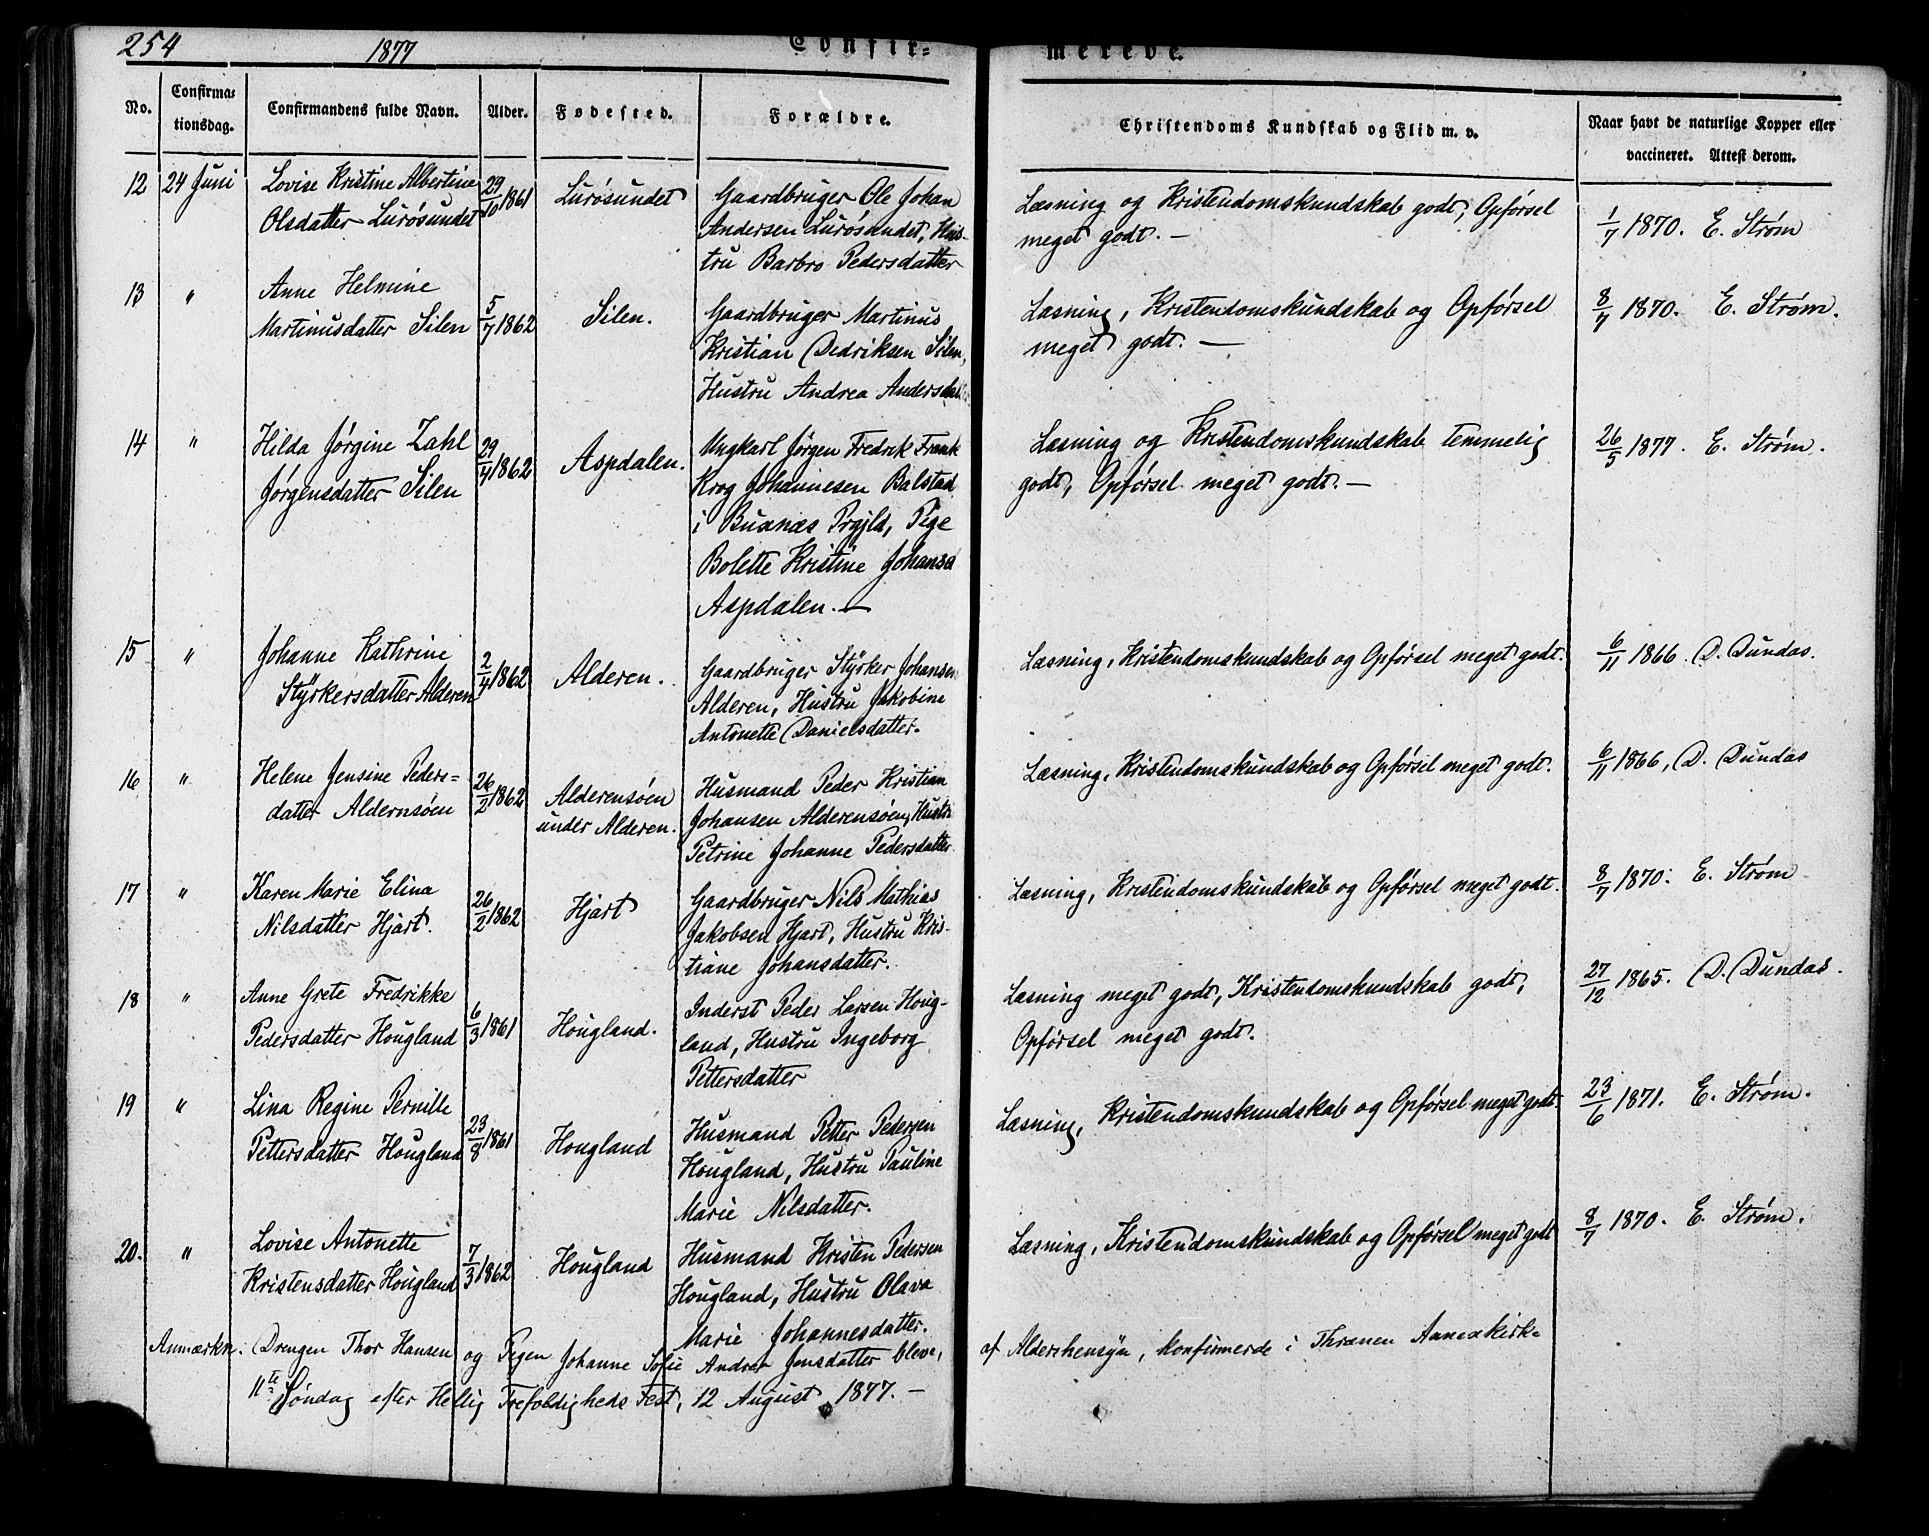 254
1877
Confir=
merede.
No.
Confirma=
tionsdag.
Confirmandens fulde Navn.
Alder.
Fødested.
Forældre.
Christendoms Kundskab og Flid m. v.
Naar havt de naturlige Kopper eller
vaccineret. Attest derom.
12 24 Juni Lovise Kristine Albertine 29/10 1861 Lurøsundet Gaardbruger Ole Johan Læsning og Kristendomskundskab godt, Opførsel 1/7 1870. E. Strøm
Olsdatter Lurøsundet Andersen Lurøsundet, Hus- meget godt. —
tru Barbro Pedersdatter
13 " Anne Helmine 5/7 1862 Silen. Gaardbruger Martinus Læsning, Kristendomskundskab og Opførsel 8/7 1870. E. Strøm.
Martinusdatter Silen Kristian Dedriksen Silen, meget godt. —
Hustru Andrea Andersdat
14 " Hilda Jørgine Zahl 29/4 1862 Aspdalen. Ungkarl Jørgen Fredrik Frank Læsning og Kristendomskundskab temmelig 26/5 1877. E. Strøm.
Jørgensdatter Silen Krog Johannesen Balstad godt, Opførsel meget godt. —
i Buxnæs Prgjld, Pige
Bolette Kristine Johansd
Aspdalen. —
15 " Johanne Kathrine 2/4 1862 Alderen. Gaardbruger Styrker Johansen Læsning, Kristendomskundskab og Opførsel meget godt. 6/11 1866. D. Dundas.
Styrkersdatter Alderen Alderen, Hustru Jakobine
Antonette Danielsdatter.
16 " Helene Jensine Peders= 26/2 1862 Alderensøen Husmand Peder Kristian Læsning, Kristendomskundskab og Opførsel meget godt. 6/11 1866, D. Dundas
datter Aldernsøen under Alderen. Johansen Alderensøen, Hustru
Petrine Johanne Pedersdatter
17 " Karen Marie Elina 26/2 1862 Hjart Gaardbruger Nils Mathias Læsning, Kristendomskundskab og Opførsel meget godt. 8/7 1870. E. Strøm
Nilsdatter Hjart. Jakobsen Hjart, Hustru Kris-
tiane Johansdatter.
18 " Anne Grete Fredrikke 6/3 1861 Hougland. Inderst Peder Larsen Houg- Læsning meget godt, Kristendomskundskab godt, 27/12 1865. D. Dundas.
Pedersdatter Hougland land, Hustru Ingeborg Opførsel meget godt.
Pettersdatter
19 " Lina Regine Pernille 23/8 1861 Hougland Husmand Petter Pedersen Læsning, Kristendomskundskab og Opførsel meget godt. 23/6 1871. E. Strøm.
Pettersdatter Hougland Hougland, Hustru Pauline
Marie Nilsdatter.
20. " Lovise Antonette 7/3 1862 Hougland Husmand Kristen Pedersen Læsning, Kristendomskundskab og Opførsel meget godt 8/7 1870. E. Strøm.
Kristensdatter Hougland Hougland, Hustru Olava
Marie Johannesdatter.
Anmærkn: Drengen Thor Hansen og Pigen Johanne Sofie Andrea Jensdatter bleve, af konfirmerede i Thrænen Annexkirk=
11te Søndag efter Hellig Trefoldigheds Fest, 12 August 1877. —